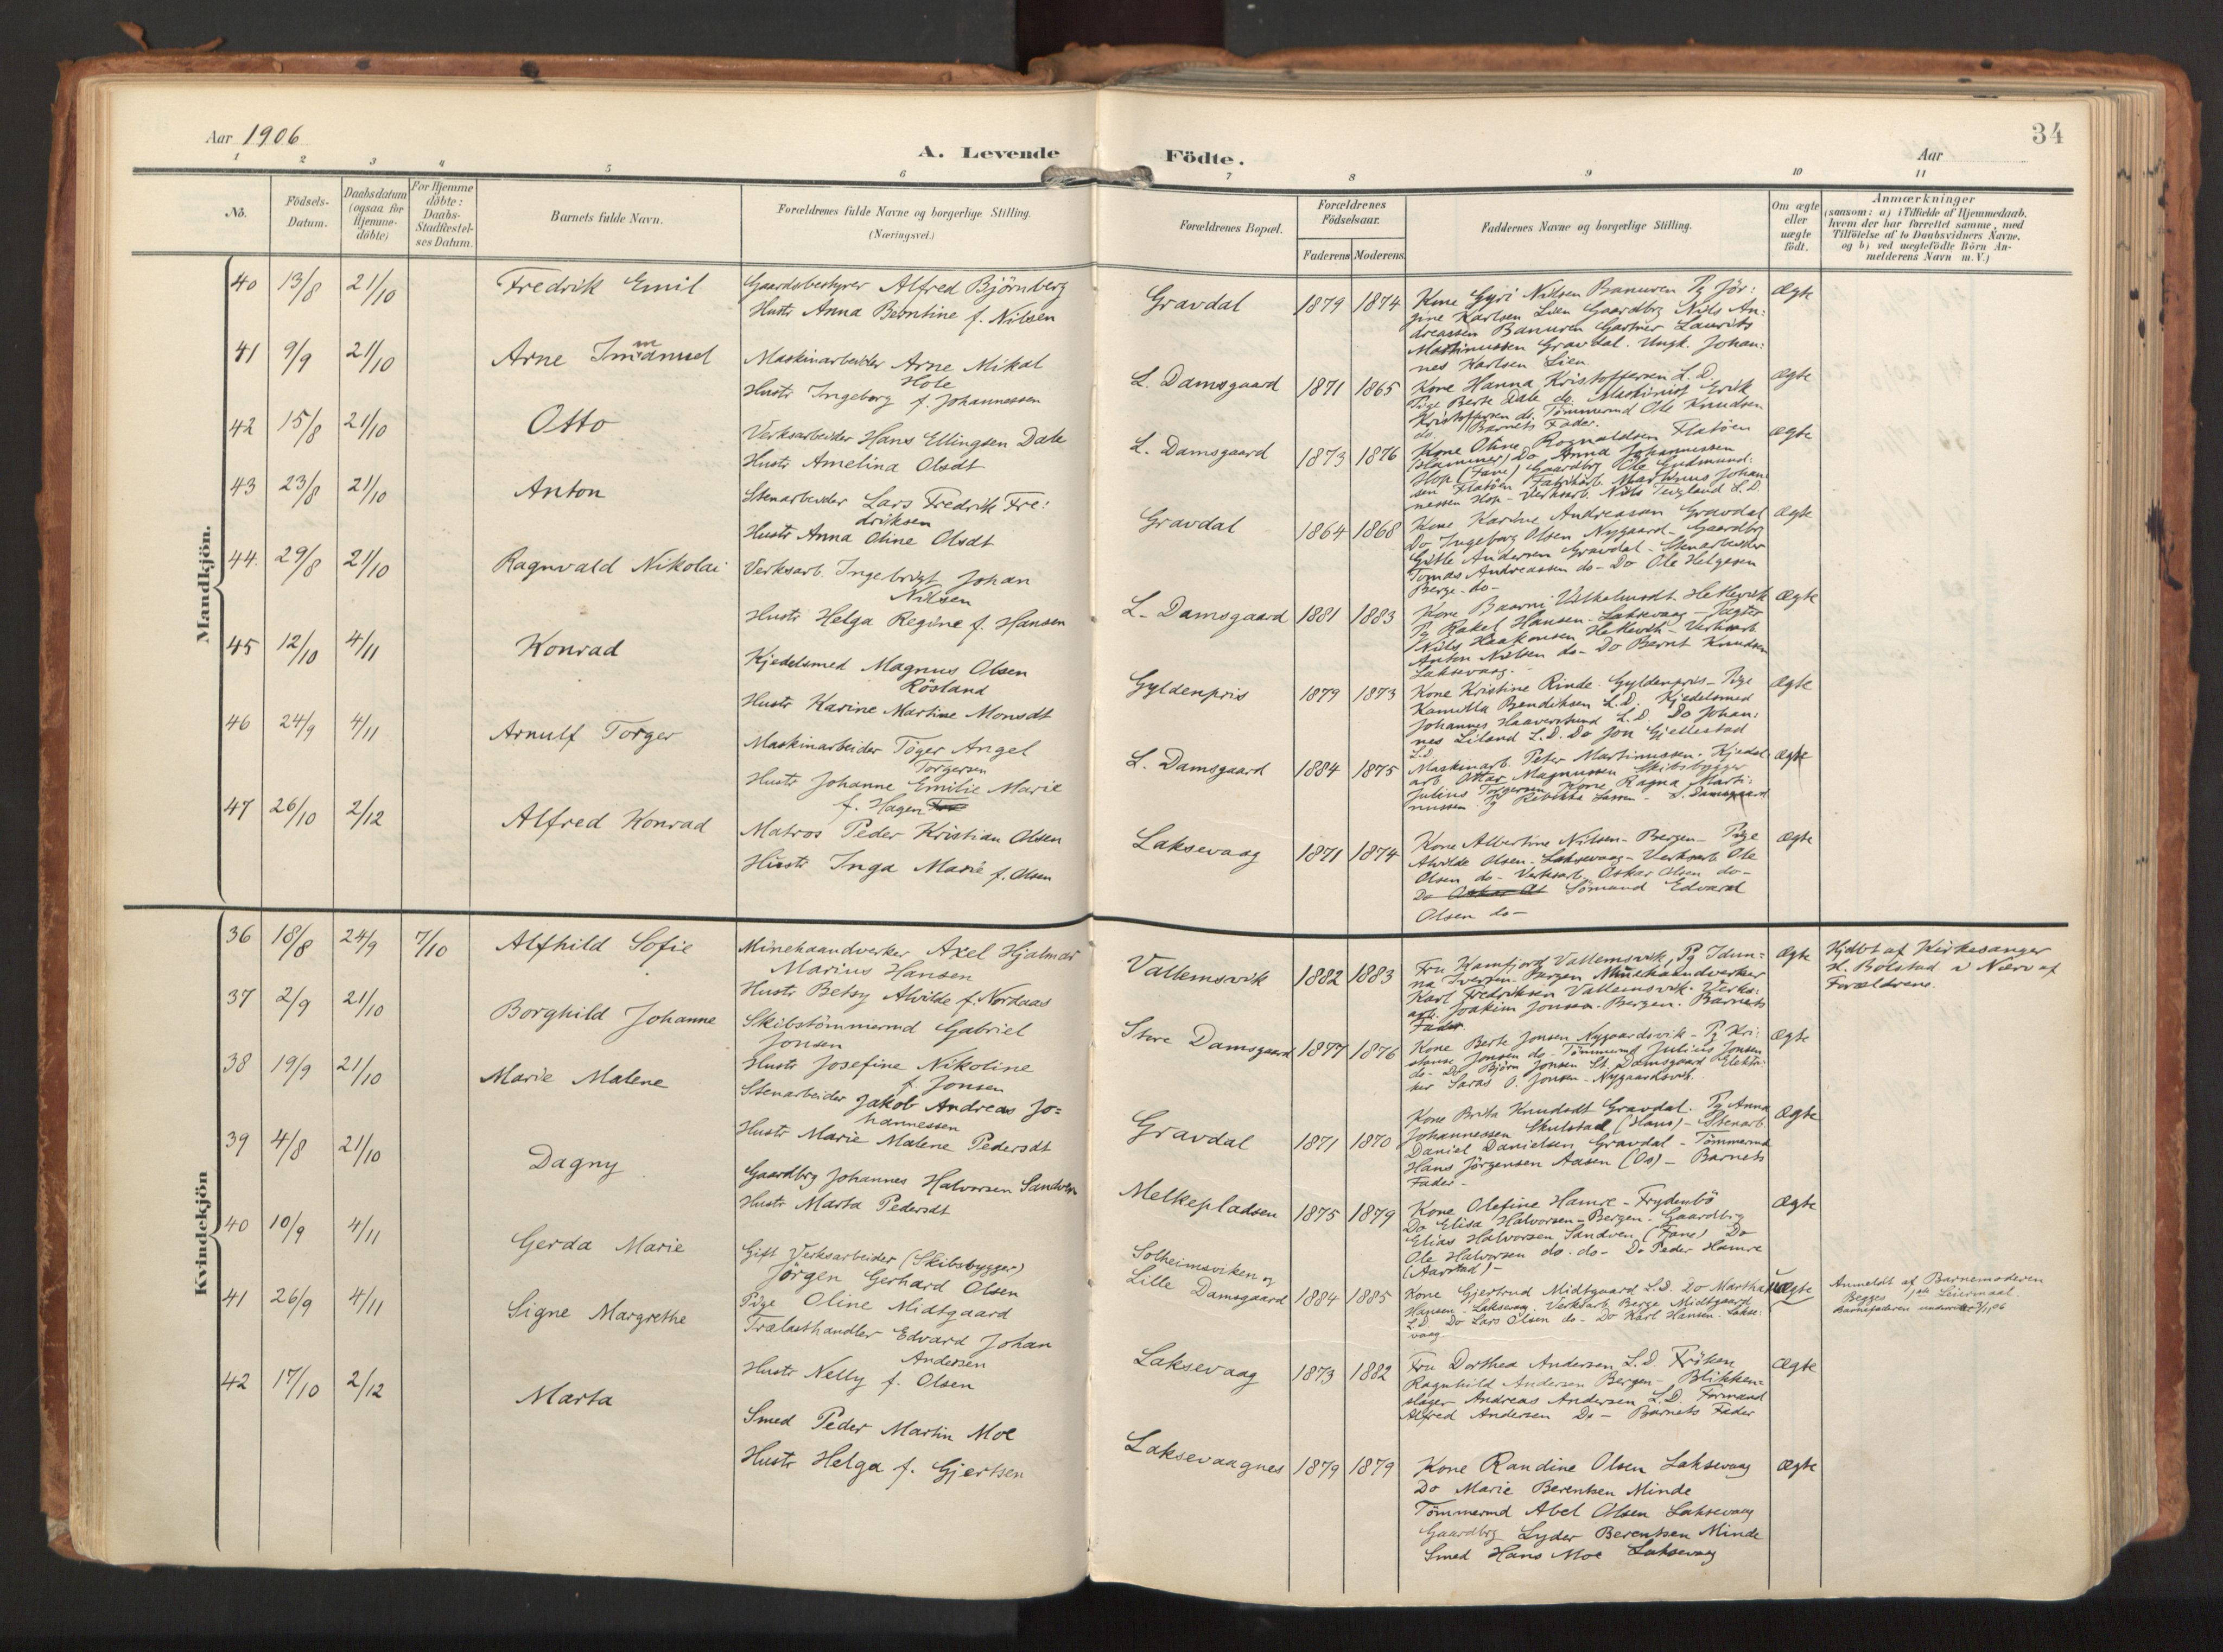 34
Aar 1906
A. Levende
Födte.
Aar
1 2 3 4 5 6
7 8 9 10 11
No.
Födsels-
Datum.
Daabsdatum
(ogsaa for
Hjemme-
döbte)
For Hjemme
döbte:
Daabs-
Stadfæstel-
ses Datum.
Barnets fulde Navn.
Forældrenes fulde Navne og borgerlige Stilling.
(Næringsvei.)
Forældrenes Bopæl.
Forældrenes
Födselsaar.
Faderens Moderens
Faddernes Navne og borgerlige Stilling.
Om ægte
eller
uægte
födt.
Anmærkninger
(saasom: a) i Tilfælde af Hjemmedaab,
hvem der har forrettet samme, med
Tilföielse af to Daabsvidners Navne,
og b) ved uægtefödte Börn An-
melderens Navn m.V.)
Mandkjön.
40 13/8 21/10
Fredrik Emil
Gaardsbestyrer Alfred Björnberg
Hustr Anna Berntine f. Nilsen
Gravdal
1879 1874
Kone Gyri Nilsen Banuren Pg Jör:
gine Karlsen Lien Gaardbrg Nils An:
dreassen Banuren Gartner Laurits
Martinussen Gravdal. Ungk. Johan:
nes Karlsen Lien
Ægte
41 9/9 21/10
Arne Immanuel
Maskinarbeider Arne Mikal
Hole
Hustr Ingeborg f. Johannessen
L. Damsgaard
1871 1865
Kone Hanna Kristoffersen L.D.
Pige Berte Dale do. Maskinist Erik
Kristoffersen do. Tömmermd Ole Knudsen
do. Barnets Fader.
Ægte
42 15/8 21/10
Otto
Verksarbeider Hans Ellingsen Dale
Hustr Amelina Olsdt
L. Damsgaard
1873 1876
Kone Oline Rognaldsen Flatöen
(Hammer) Do Anna Johannessen
Hop (Fane) Gaardbrg Ole Gudmund:
sen Flatöen Fabrikarb. Martinus Johan
nessen Hop - Verksarb. Nils Teigland L.D.
Ægte
43 23/8 21/10
Anton
Stenarbeider Lars Fredrik Fre:
driksen
Hustr Anna Oline Olsdt
Gravdal
1864 1868
Kone Karine Andreassen Gravdal
Do Ingeborg Olsen Nygaard - Gaardbrg
Gitle Andersen Gravdal - Stenarbeider
Tomas Andreassen do - Do Ole Helgesen
Berge - do -
Ægte
44. 29/8 21/10
Ragnvald Nikolai
Verksarb. Ingebrigt Johan
Nilsen
Hustr Helga Regine f. Hansen
L. Damsgaard
1881 1883
Kone Vilhelmsdt. Hetlevik
Pg Rakel Hansen. Laksevaag -
Nils Haakonsen Hetlevik - Verksarb
Anton Nilsen do - Do Bernt Knudsen
Laksevaag.
Ægte
45 12/10 4/11
Konrad
Kjedelsmed Magnus Olsen
Rösland
Hustr Karine Martine Monsdt
Gyldenpris
1879 1873
Kone Kristine Rinde. Gyldenpris - Pige
Kamilla Bendiksen L.D. Kjedelsmed
Johannes Haaverstund L.D. Do Johan:
nes Liland L.D. Do Jon Gjellestad
L.D.
Ægte
46 24/9 4/11
Arnulf Torger
Maskinarbeider Töger Angel
Torgersen
Hustr Johanne Emilie Marie
f. Hagen
L. Damsgaard
1884 1875
Maskinarb. Peter Martinussen. Kjedel
arb Ottar Magnussen Skibsbygger
Julius Torgersen Kone Ragna Marti:
nussen. Pg Rebekka Larsen - L. Damsgaard
Ægte
47 26/10 2/12
Alfred Konrad
Matros Peder Kristian Olsen
Hustr Inga Marie f. Olsen
Laksevaag
1871 1874
Kone Albertine Nilsen - Bergen - Pige
Alvilde Olsen - Laksevaag - Verksarb Ole
Olsen do - Verksarb. Oskar Olsen do -
Do Sömand Edvard
Olsen do -
Ægte
Kvindekjön
36 18/8 24/9 7/10
Alfhild Sofie
Minehaandverker Axel Hjalmar
Marius Hansen
Hustr Betsy Alvilde f. Nordaas
Vallemsvik
1882 1883
Fru Kamfjord Vallemsvik, Pg Idun=
na Iversen. Bergen Minehaandverker
Karl Fredriksen Vallemsvik. Verks:
arb. Joakim Jonsen. Bergen. Barnets
Fader.
Ægte
Hjdbt af Kirkesanger
H. Bolstad i Nærv af
Forældrene.
37 2/9 21/10
Borghild Johanne
Skibstömmermd Gabriel
Jonsen
Hustr Josefine Nikoline
f. Jonsen
Store Damsgaard
1877 1876
Kone Berte Jonsen Nygaardsvik - Pg Kri:
stense Jonsen do - Tömmermd Julius Jonsen
do - Do Björn Jonsen St. Damsgaard Elektri:
ker Saras O. Jonsen - Nygaardsvik.
Ægte
38 19/9 21/10
Marie Malene
Stenarbeider Jakob Andreas Jo=
hannessen
Hustr Marie Malene Pedersdt
Gravdal
1871 1870
Kone Brita Knudsdt Gravdal. Pg Anna
Johannessen Skulstad (Haus) - Stenarb.
Daniel Danielsen Gravdal - Tömmermd
Hans Jörgensen Aasen (Os) - Barnets
Fader -
Ægte
39 4/8 21/10
Dagny
Gaardbrg Johannes Halvorsen Sandven
Hustr Marta Pedersdt
Melkepladsen
1875 1879
Kone Olefine Hamre - Frydenbö
Do Elisa Halvorsen - Bergen - Gaardbrg
Elias Halvorsen Sandven (Fane) Do
Ole Halvorsen do. do - Do Peder Hamre
(Aarstad) -
Ægte
40 10/9 4/11
Gerda Marie
Gift Verksarbeider (Skibsbygger)
Jörgen Gerhard Olsen
Pige Oline Midtgaard
Solheimsviken og
Lille Damsgaard
1884 1885
Kone Gjertrud Midtgaard L.D. Do Martha
Hansen - Laksevaag. Verksarb Berge Midtgaard
L.D. Do Lars Olsen do - Do Karl Hansen. Lakse:
vaag
Uægte
Anmeldt af Barnemoderen
Begges Leiermaal.
41 26/9 4/11
Signe Margrethe
Trælasthandler Edvard Johan
Andersen
Hustr Nelly f. Olsen
Laksevaag
1873 1882
Fru Dorthea Andersen L.D. Fröken
Ragnhild Andersen Bergen - Blikken=
slager Andreas Andersen L.D. Formand
Alfred Andersen Do - Barnets Fader
Ægte
42 17/10 2/12
Marta
Smed Peder Martin Moe
Hustr Helga f. Gjertsen
Laksevaagnes
1879 1879
Kone Randine Olsen Laksevaag
Do Marie Berentsen Minde
Tömmermd Abel Olsen Laksevaag
Gaardbrg Lyder Berentsen Minde
Smed Hans Moe Laksevaag
Ægte